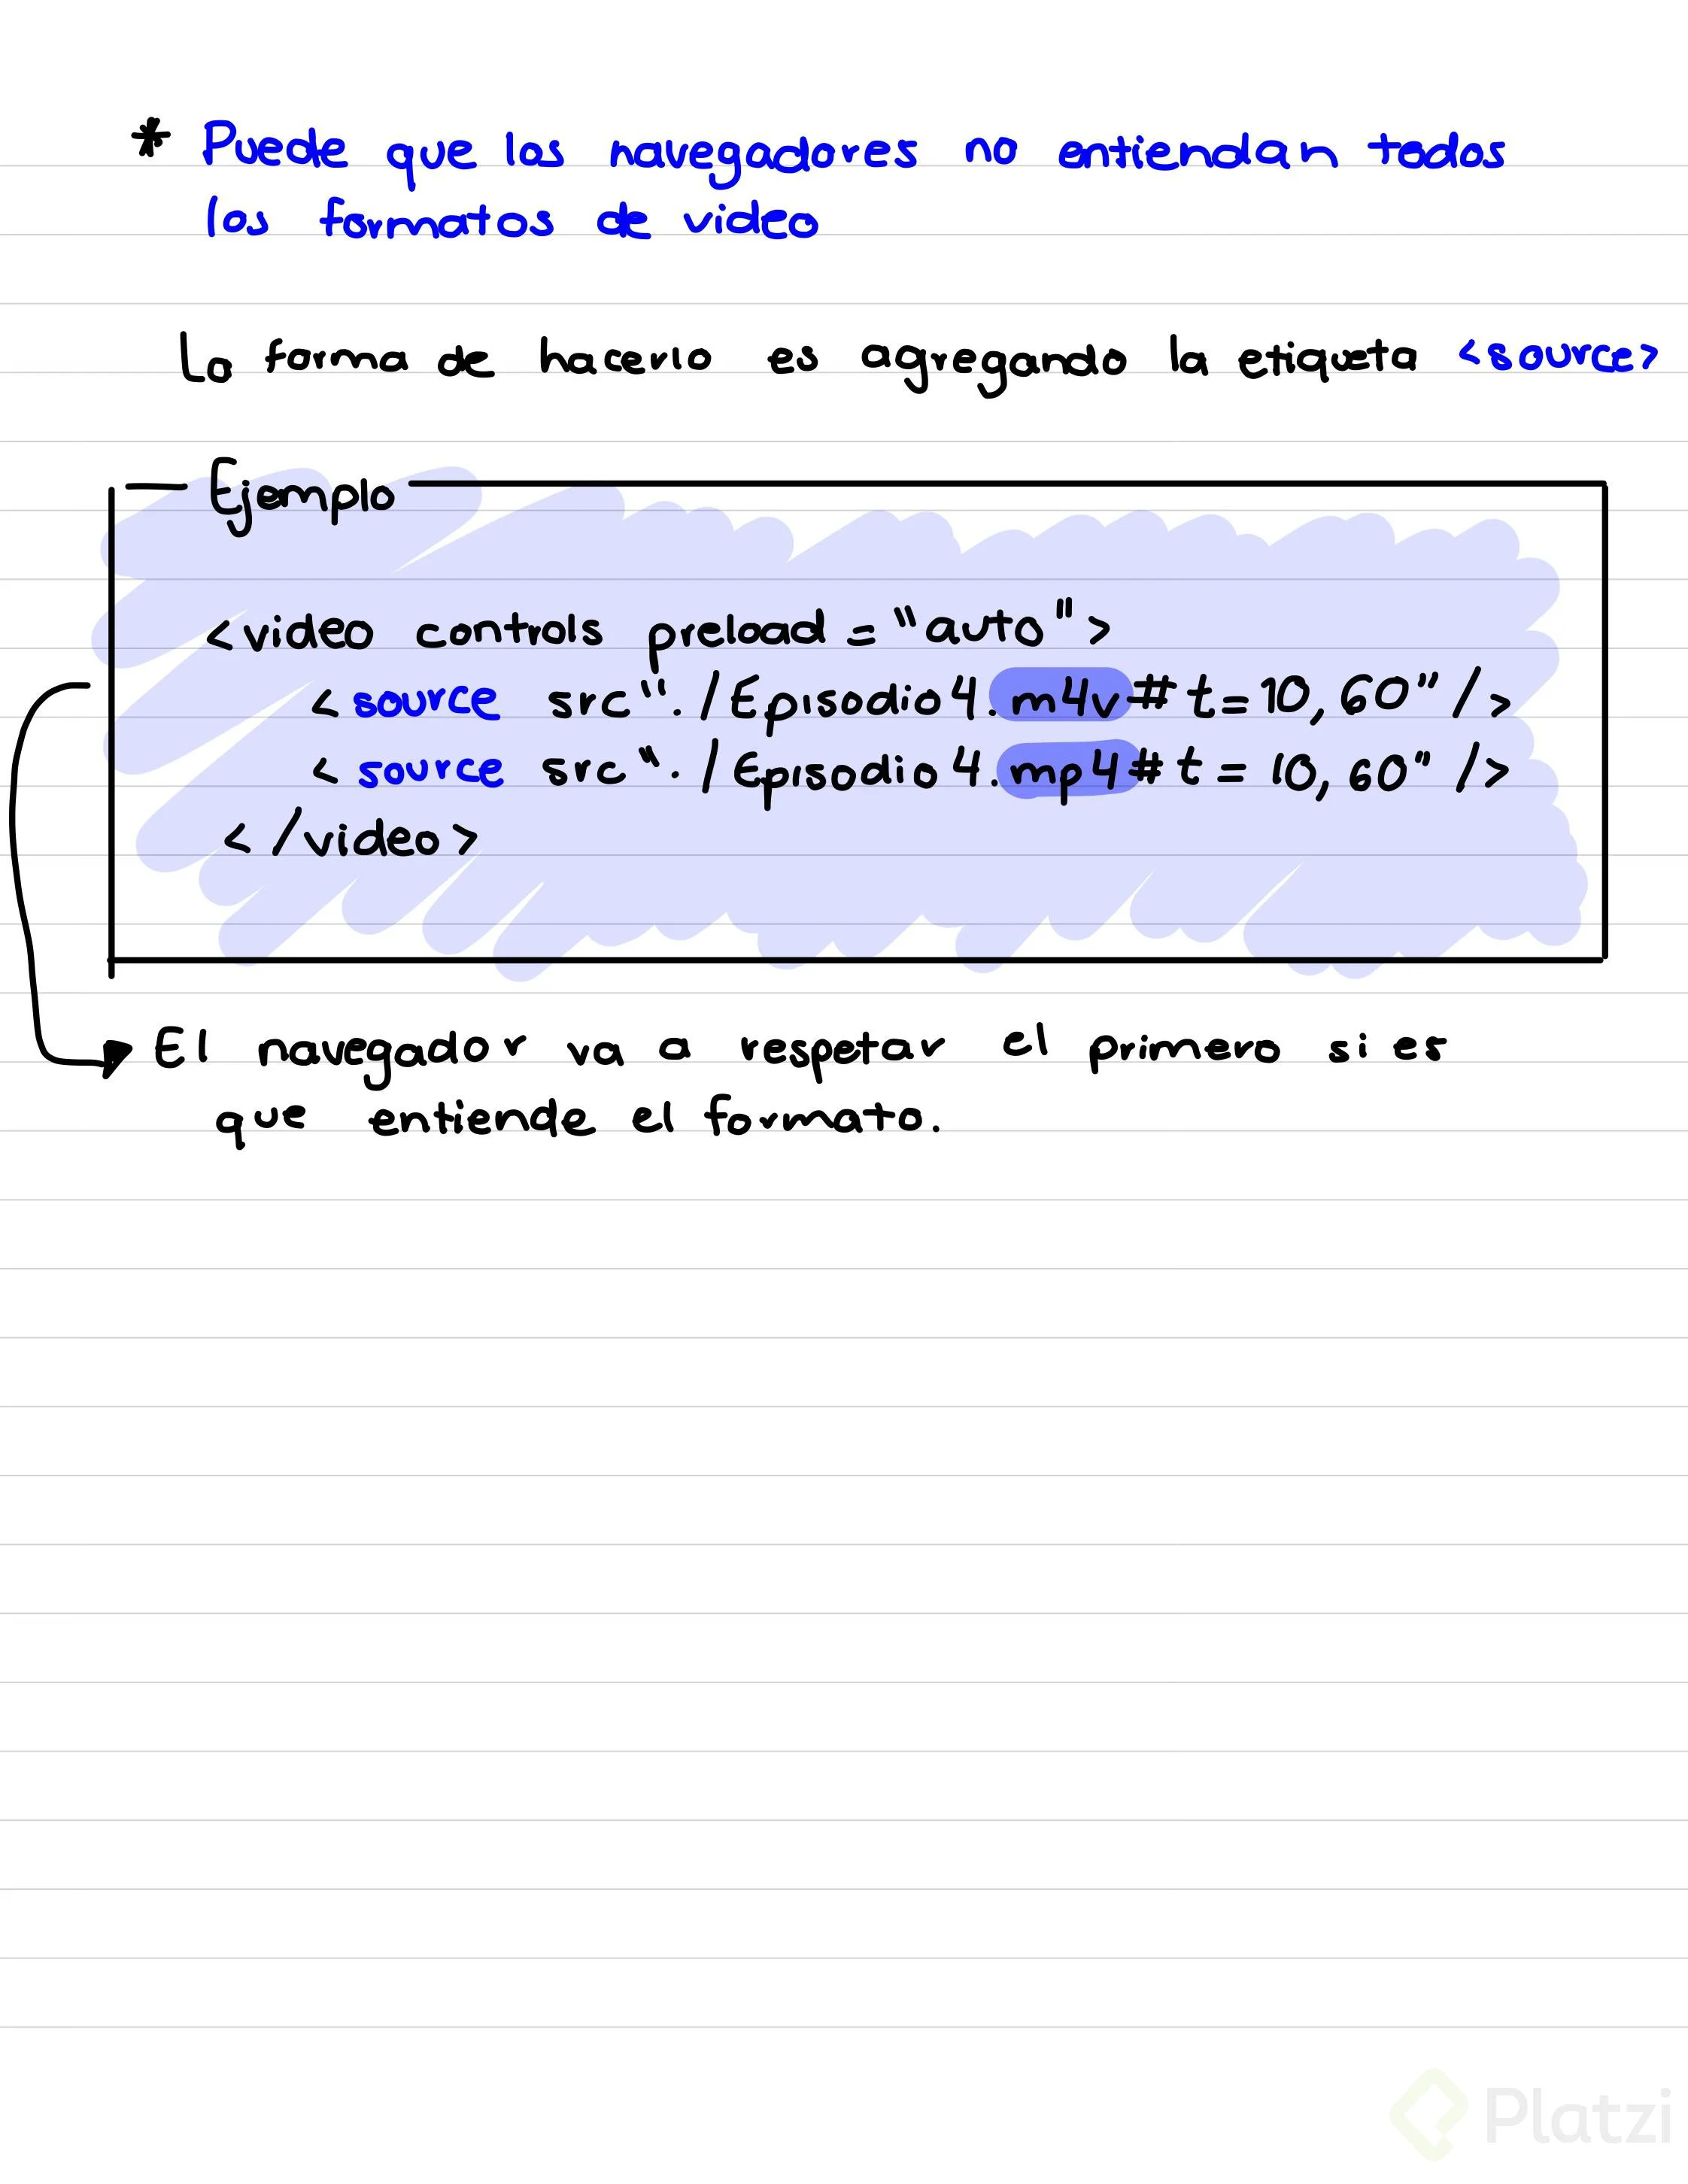 * Puede que los navegadores no entiendan todos
los formatos de video
La forma de hacerlo es agregando la etiqueta <source>
Ejemplo
<video controls preload = "auto">
<source src"./Episodio4.m4v#t=10,60" />
<source src"./Episodio4.mp4#t=10,60" />
</video>
El navegador va a respetar el primero si es
que entiende el formato.
Platzi